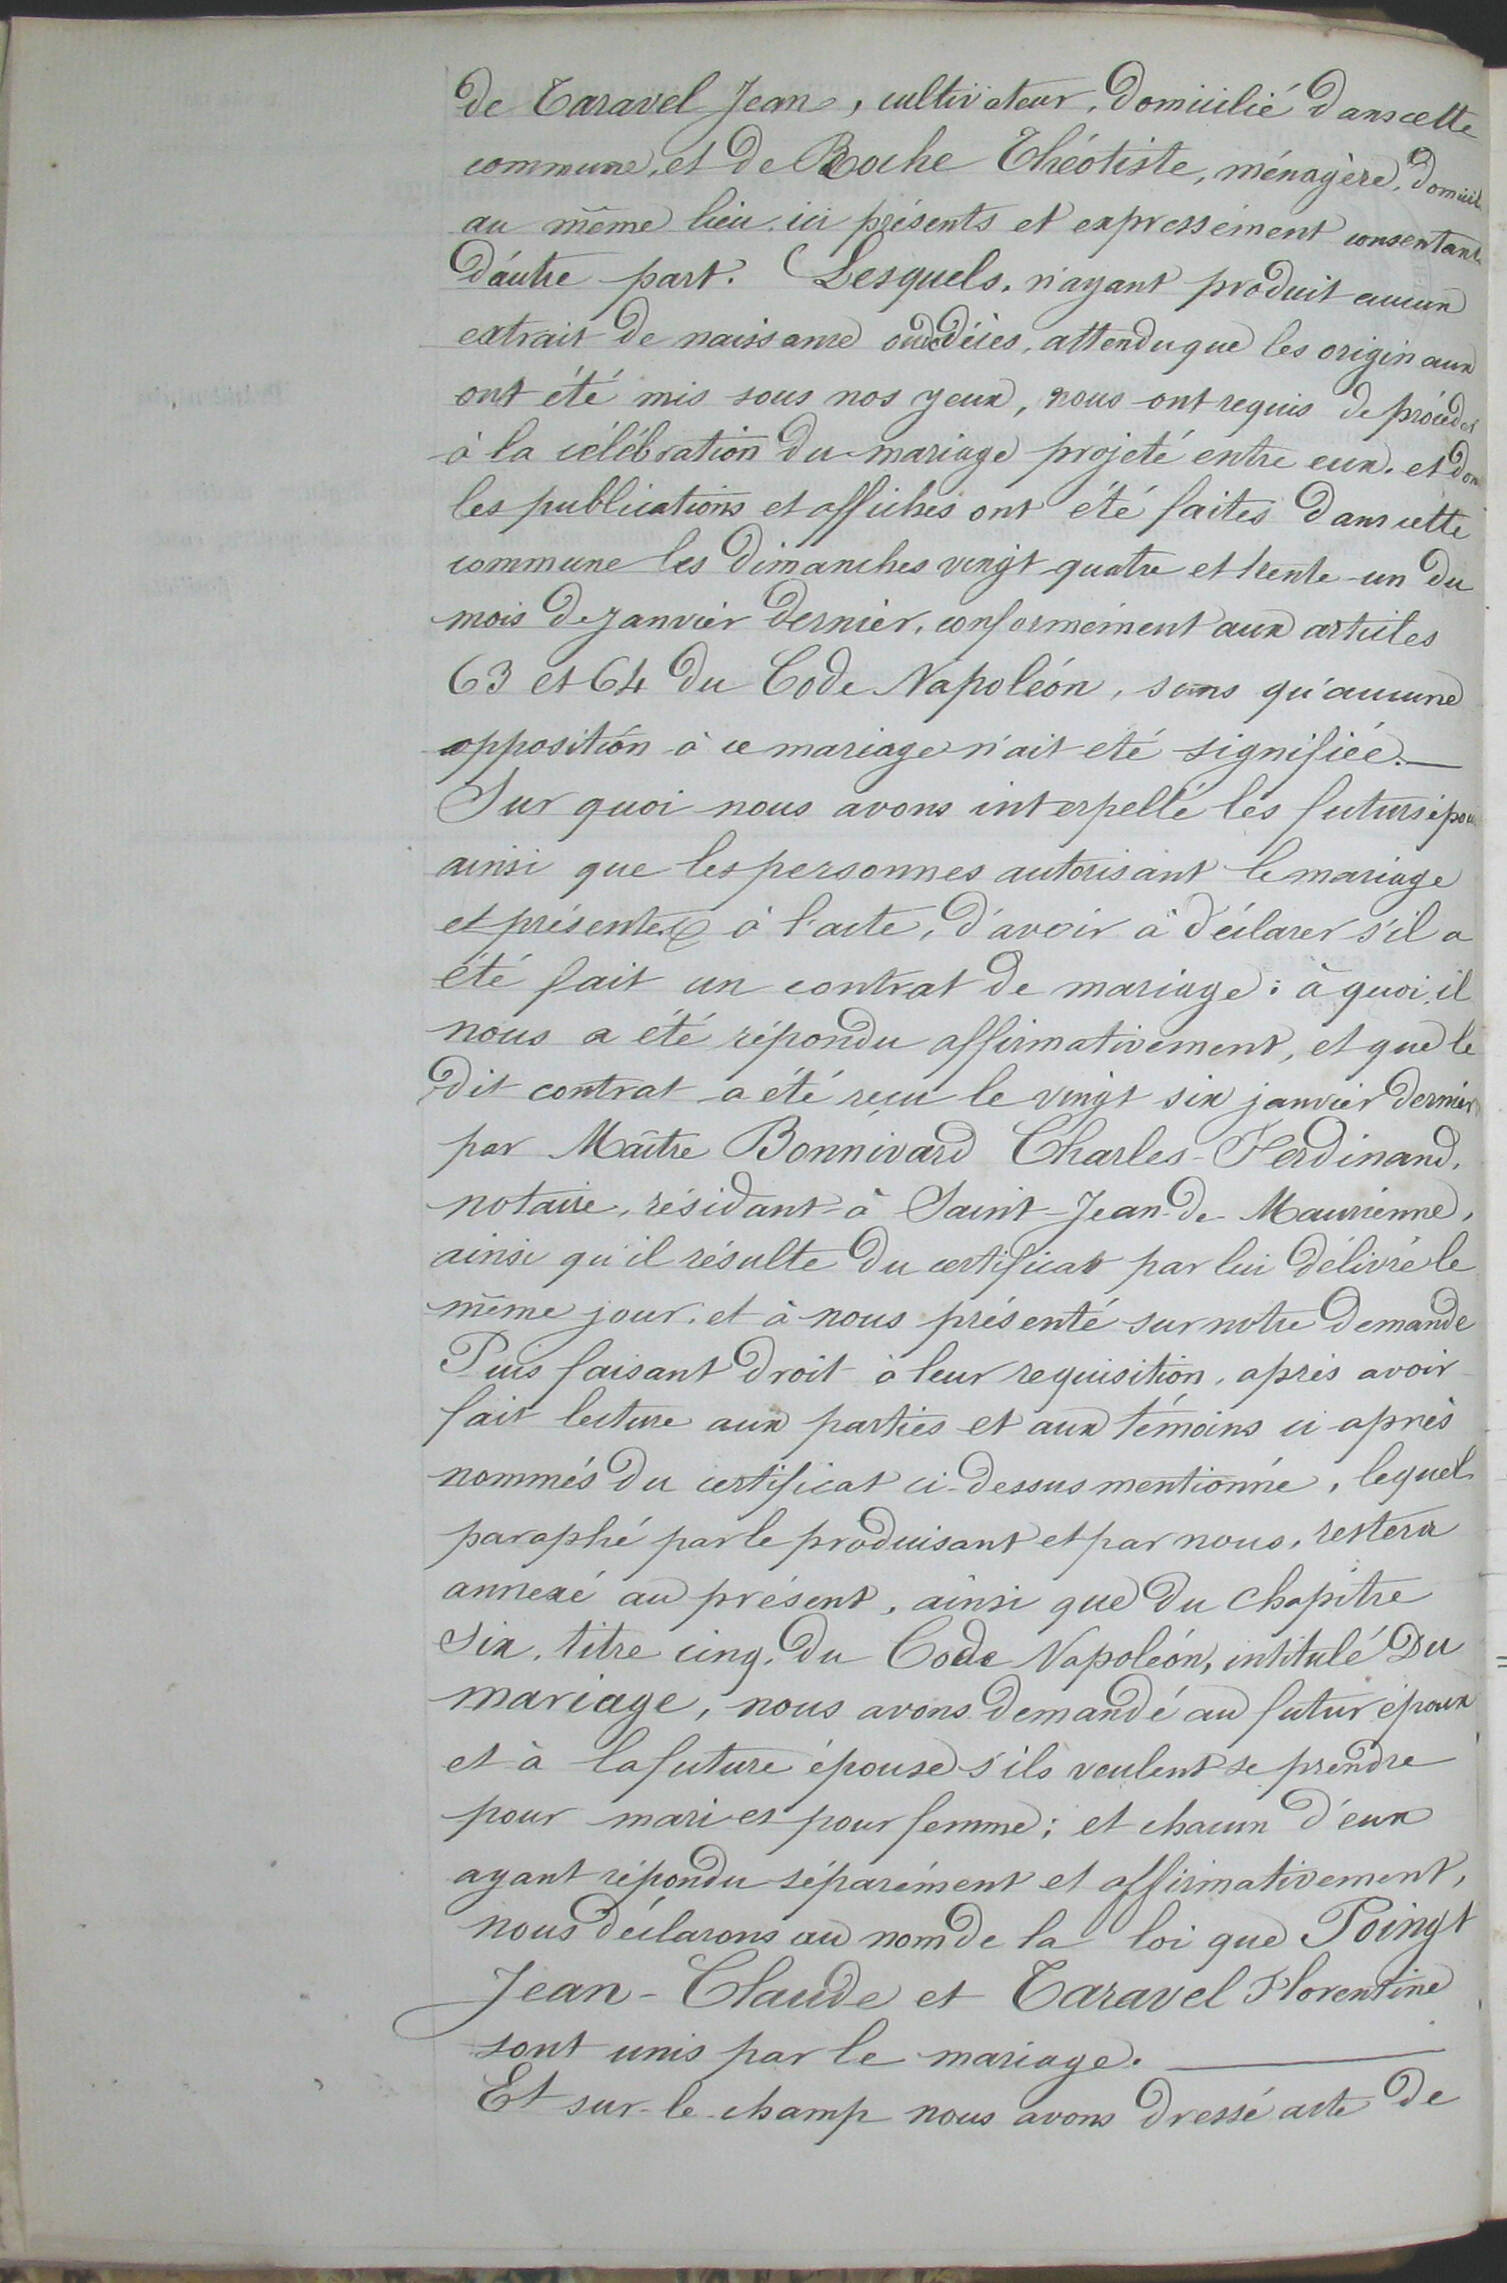 de Taravel Jean, cultivateur, domicilié dans cette
commune, et de Roche Théotiste, ménagère, domicil
au même lieu, ici présents et expressément consentant
d'autre part. Lesquels, n'ayant produit aucun
extrait de naissance ou décès, attendu que les originaux
ont été mis sous nos yeux, nous ont requis de procéder
à la célébration du mariage projeté entre eux, et don
les publications et affiches ont été faites dans cette
commune les dimanches vingt-quatre et trente-un du
mois de janvier dernier, conformément aux articles
63 et 64 du Code Napoléon, sans qu'aucune
opposition à ce mariage n'ait été signifiée.
Sur quoi nous avons interpellé les futurs épou
ainsi que les personnes autorisant le mariage
et présentes à l'acte, d'avoir à déclarer s'il a
été fait un contrat de mariage : à quoi il
nous a été répondu affirmativement, et que le
dit contrat a été reçu le vingt six janvier dernier
par Maître Bonnivard Charles-Ferdinand,
notaire, résidant à Saint-Jean-de-Maurienne,
ainsi qu'il résulte du certificat par lui délivré le
même jour, et à nous présenté sur notre demande
Puis faisant droit à leur requisition, après avoir
fait lecture aux parties et aux témoins ci-après
nommés du certificat ci-dessus mentionné, lequel
paraphé par le produisant et par nous, restera
annexé au présent, ainsi que du chapitre
six, titre cinq, du Code Napoléon, intitulé Du
mariage, nous avons demandé au futur époux
et à la future épouse s'ils veulent se prendre
pour mari et pour femme ; et chacun d'eux
ayant répondu séparément et affirmativement,
nous déclarons au nom de la loi que Poingt
Jean-Claude et Taravel Florentine
sont unis par le mariage.
Et sur-le-champ nous avons dressé acte de